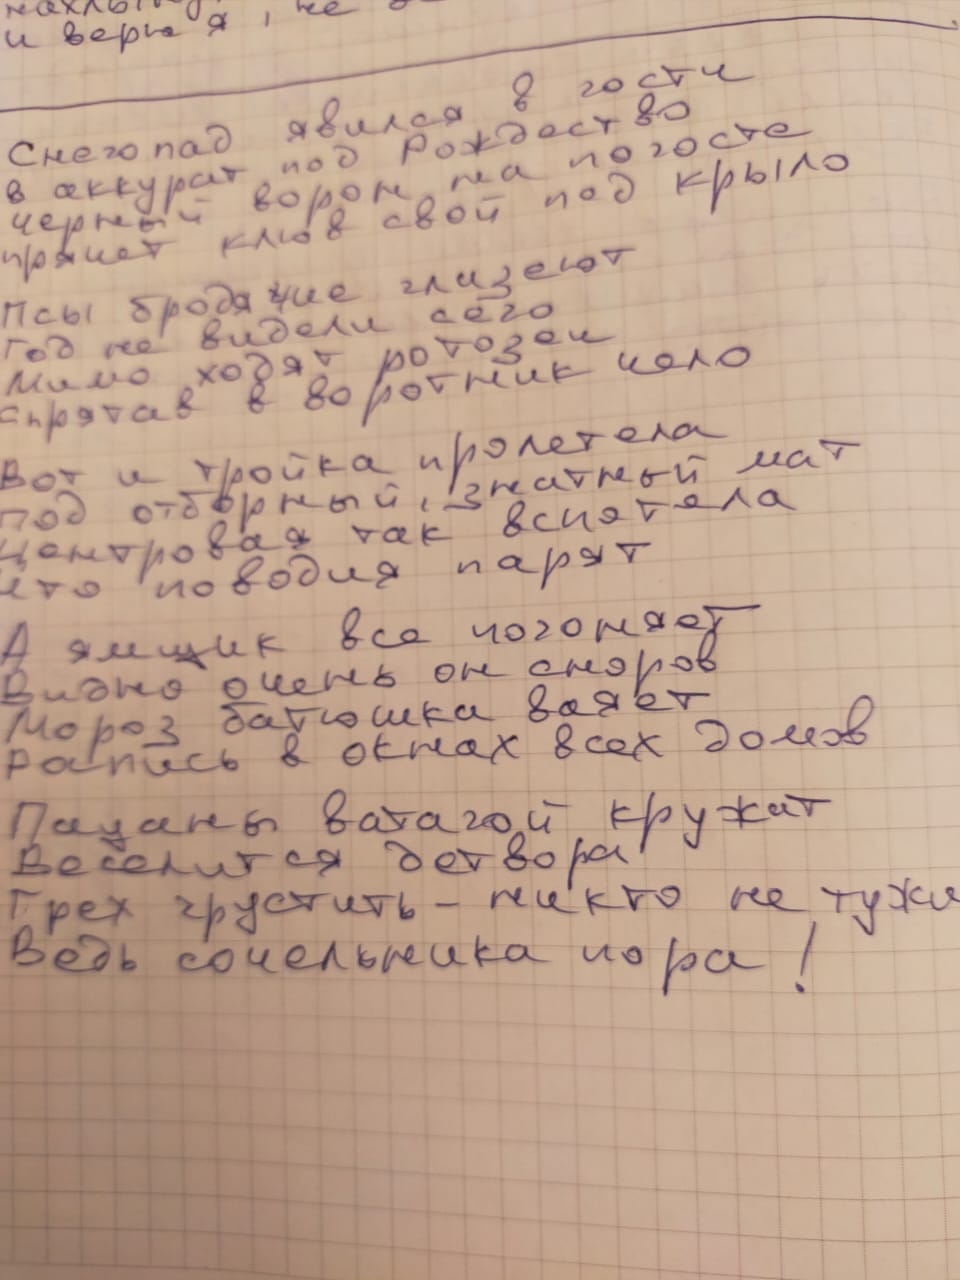 и верю я, не
Снегопад явился в гости
в аккурат под Рождество
черный ворон на погосте
прячет клюв свой под крыло
Псы бродячие глазеют
Год не видели сего
Мимо ходят ротозеи
спрятав в воротник чело
Вот и тройка пролетела
Под отборный, знатный мат
Центровая так вспотела
что поводья парят
А ямщик все погоняет
Видно очень он сноров
Мороз батюшка ваяет
Роспись в окнах всех домов
Пацаны ватагой кружат
Веселится детвора
Грех грустить - никто не тужи
Ведь сочельника пора!